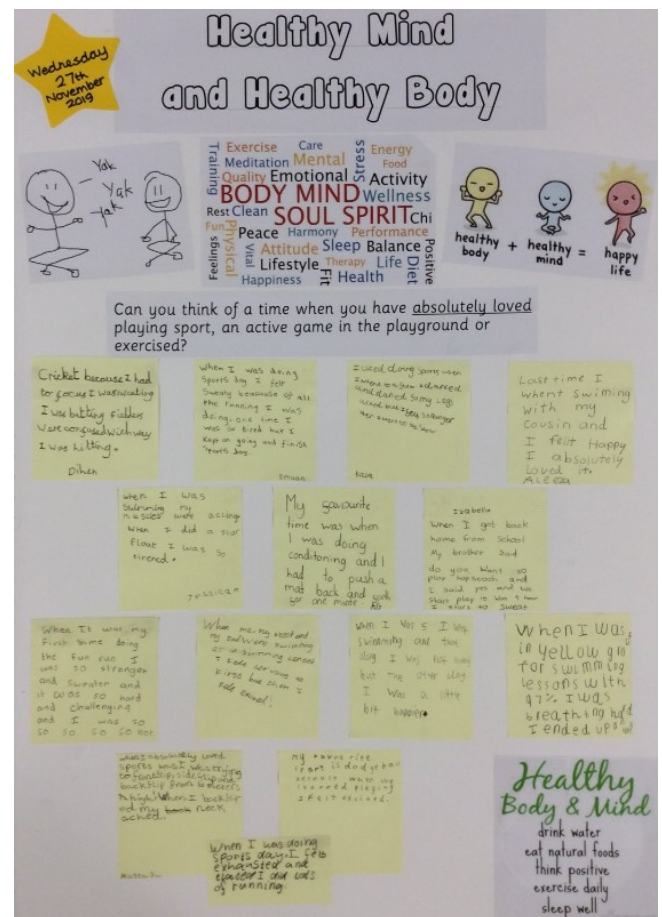 Healthy Mind
and Healthy Body
Wednesday
27th
November
2019
Yak
Yak
Yak
Training
Exercise
Care
Stress
Energy
Meditation
Mental
Food
Quality
Emotional
Activity
BODY MIND
Wellness
Rest
Clean
SOUL SPIRIT
Chi
Fun
Physical
Peace
Harmony
Performance
Feelings
Vital
Attitude
Sleep
Balance
Positive
Lifestyle
Therapy
Life
Diet
Happiness
Fit
Health
healthy
body
+
healthy
mind
=
happy
life
Can you think of a time when you have absolutely loved
playing sport, an active game in the playground or
exercised?
Cricket because I had
to focus I was
I was batting fielders
were confused wich way
I was hitting.
Dihen
When I was doing
Sports day I felt
Sweaty because of all
the running I was
doing. one time I
was so tired but I
kept on going and finish
sports day.
I loved doing sports when
I went to
and my legs
Last time I
whent swiming
with my
cousin and
I felt Happy
I absolutely
loved it.
Aleeza
When I was
swimming my
were aching
When I did a star
float I was so
tired.
Jessica
My favourite
time was when
I was doing
conditoning and I
had to push a
mat back and
for one minute.
Isabella
When I got back
home from School
My brother Said
do you want to
play and
I said yes and we
start play it 1 hour
I start to Sweat
When It was my
first time doing
the fun run I
was so stronger
and sweater and
it was so hard
and challenging
and I was so
so so so so hot
When me, my
and my swimming
at swimming
I felt nervous at
first but then I
felt
when I was 5 I was
swimming and
day I was
but the day
I was a little
bit happier.
When I was
in yellow
for swimming
lessons with
97% I was
breathing
I ended up
when I absolutely loved
sports was I was trying
to side flip and
backflip from
high! When I backflip
ed my neck
ached.
My favourite
sport is dodgeball
because when
playing
I felt excited.
When I was doing
sports day. I felt
exhausted and
I did lots
of running.
Healthy
Body & Mind
drink water
eat natural foods
think positive
exercise daily
sleep well